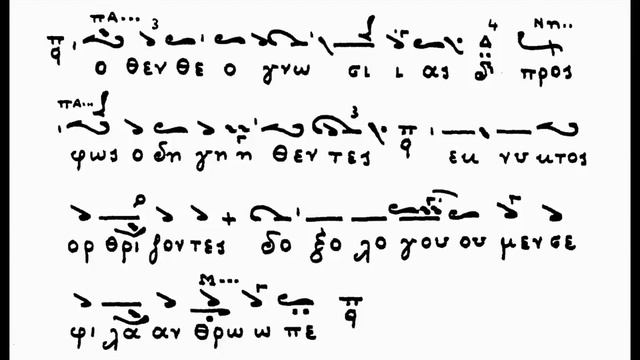 πΑ... 3 4 Νη..
ο θεν θε ο γνω σι ι ας προς
πΑ... 3
φως ο δη γη η θεν τες εκ νυ κτος
ορ θρι ζον τες δο ξο λο γου ου μεν σε
Μ...
φι λα αν θρω ω πε